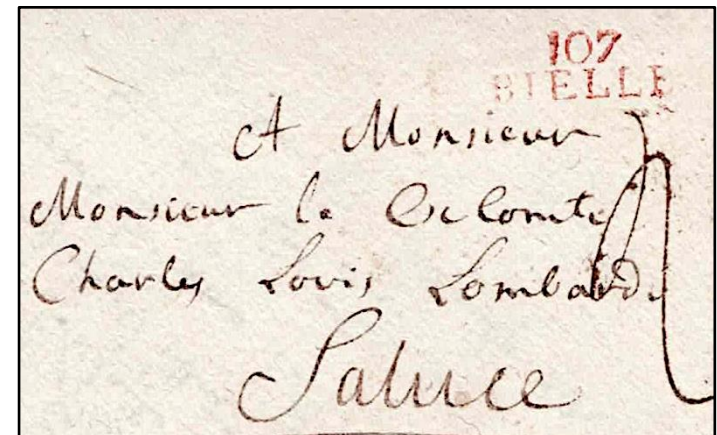 107
BIELLE
A Monsieur
Monsieur le Ex Comte
Charles Louis Lombardi
Saluce